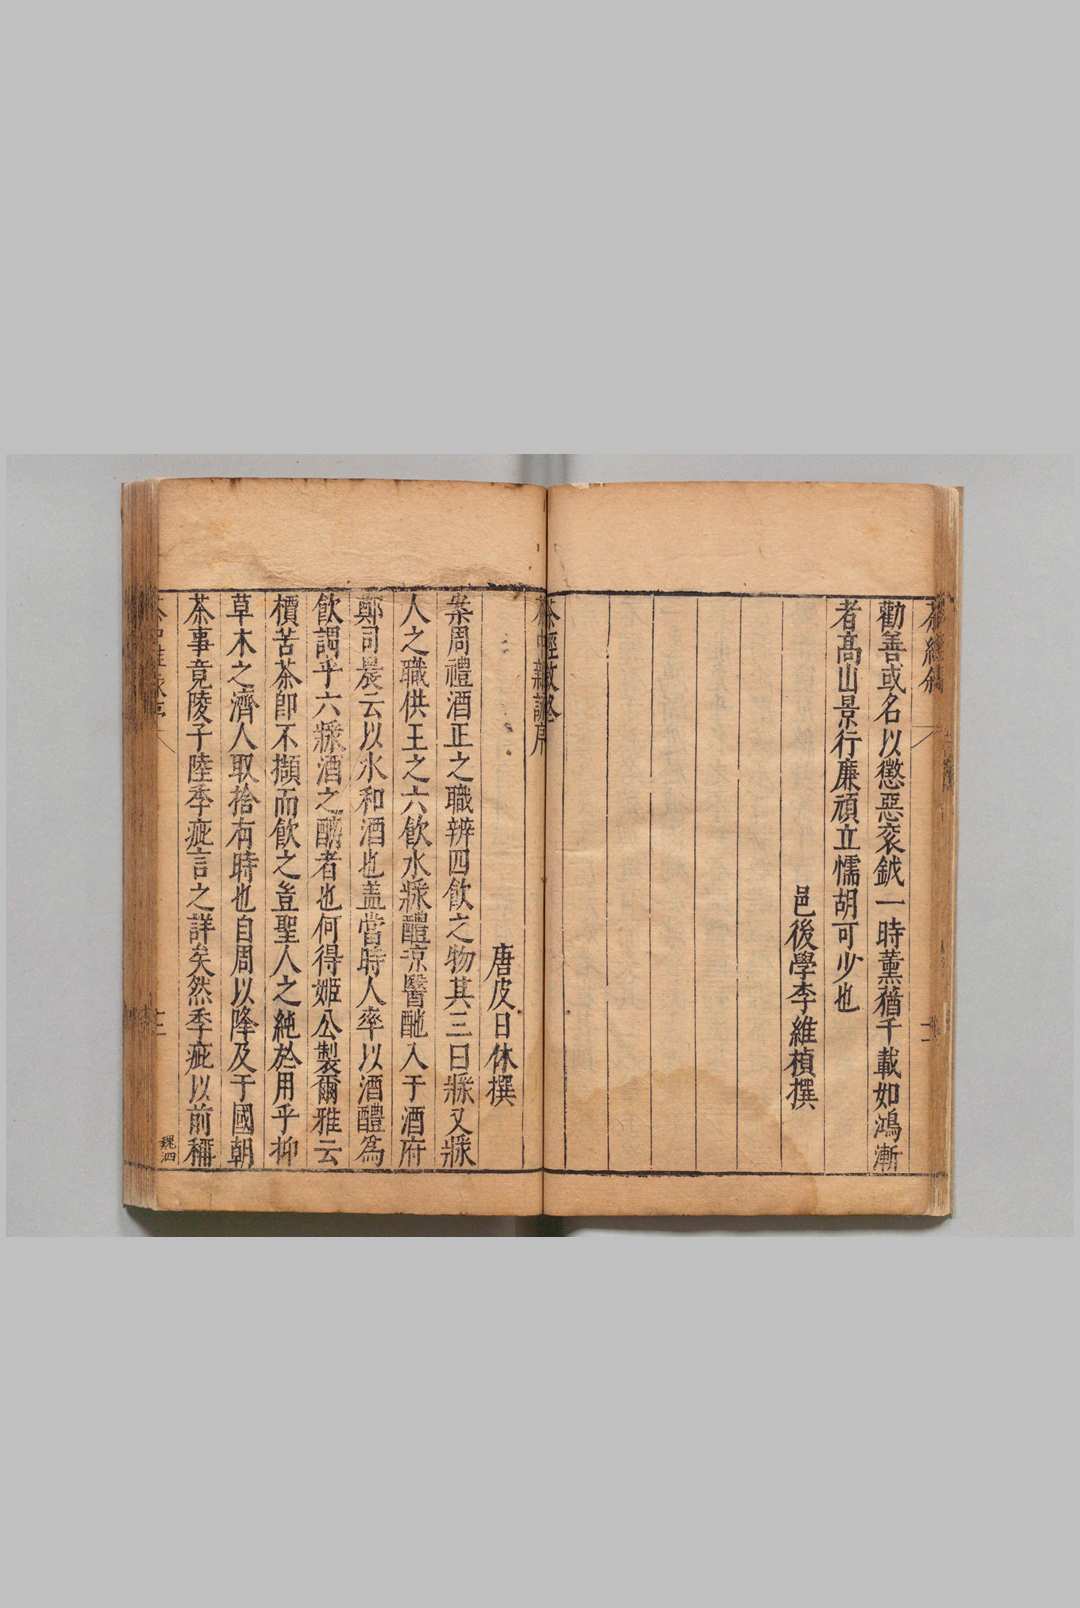 勸善或名以懲惡衮鉞一時薰蕕千載如鴻漸
者高山景行廉頑立懦胡可少也
邑後學李維楨撰
唐皮日休撰
案周禮酒正之職辨四飲之物其三曰漿又漿
人之職供王之六飲水漿醴凉醫酏入于酒府
鄭司農云以水和酒也盖當時人率以酒醴為
飲謂乎六漿酒之醨者也何得姬公製爾雅云
檟苦茶即不擷而飲之豈聖人之純於用乎抑
草木之濟人取捨有時也自周以降及于國朝
茶事竟陵子陸季疵言之詳矣然季疵以前稱